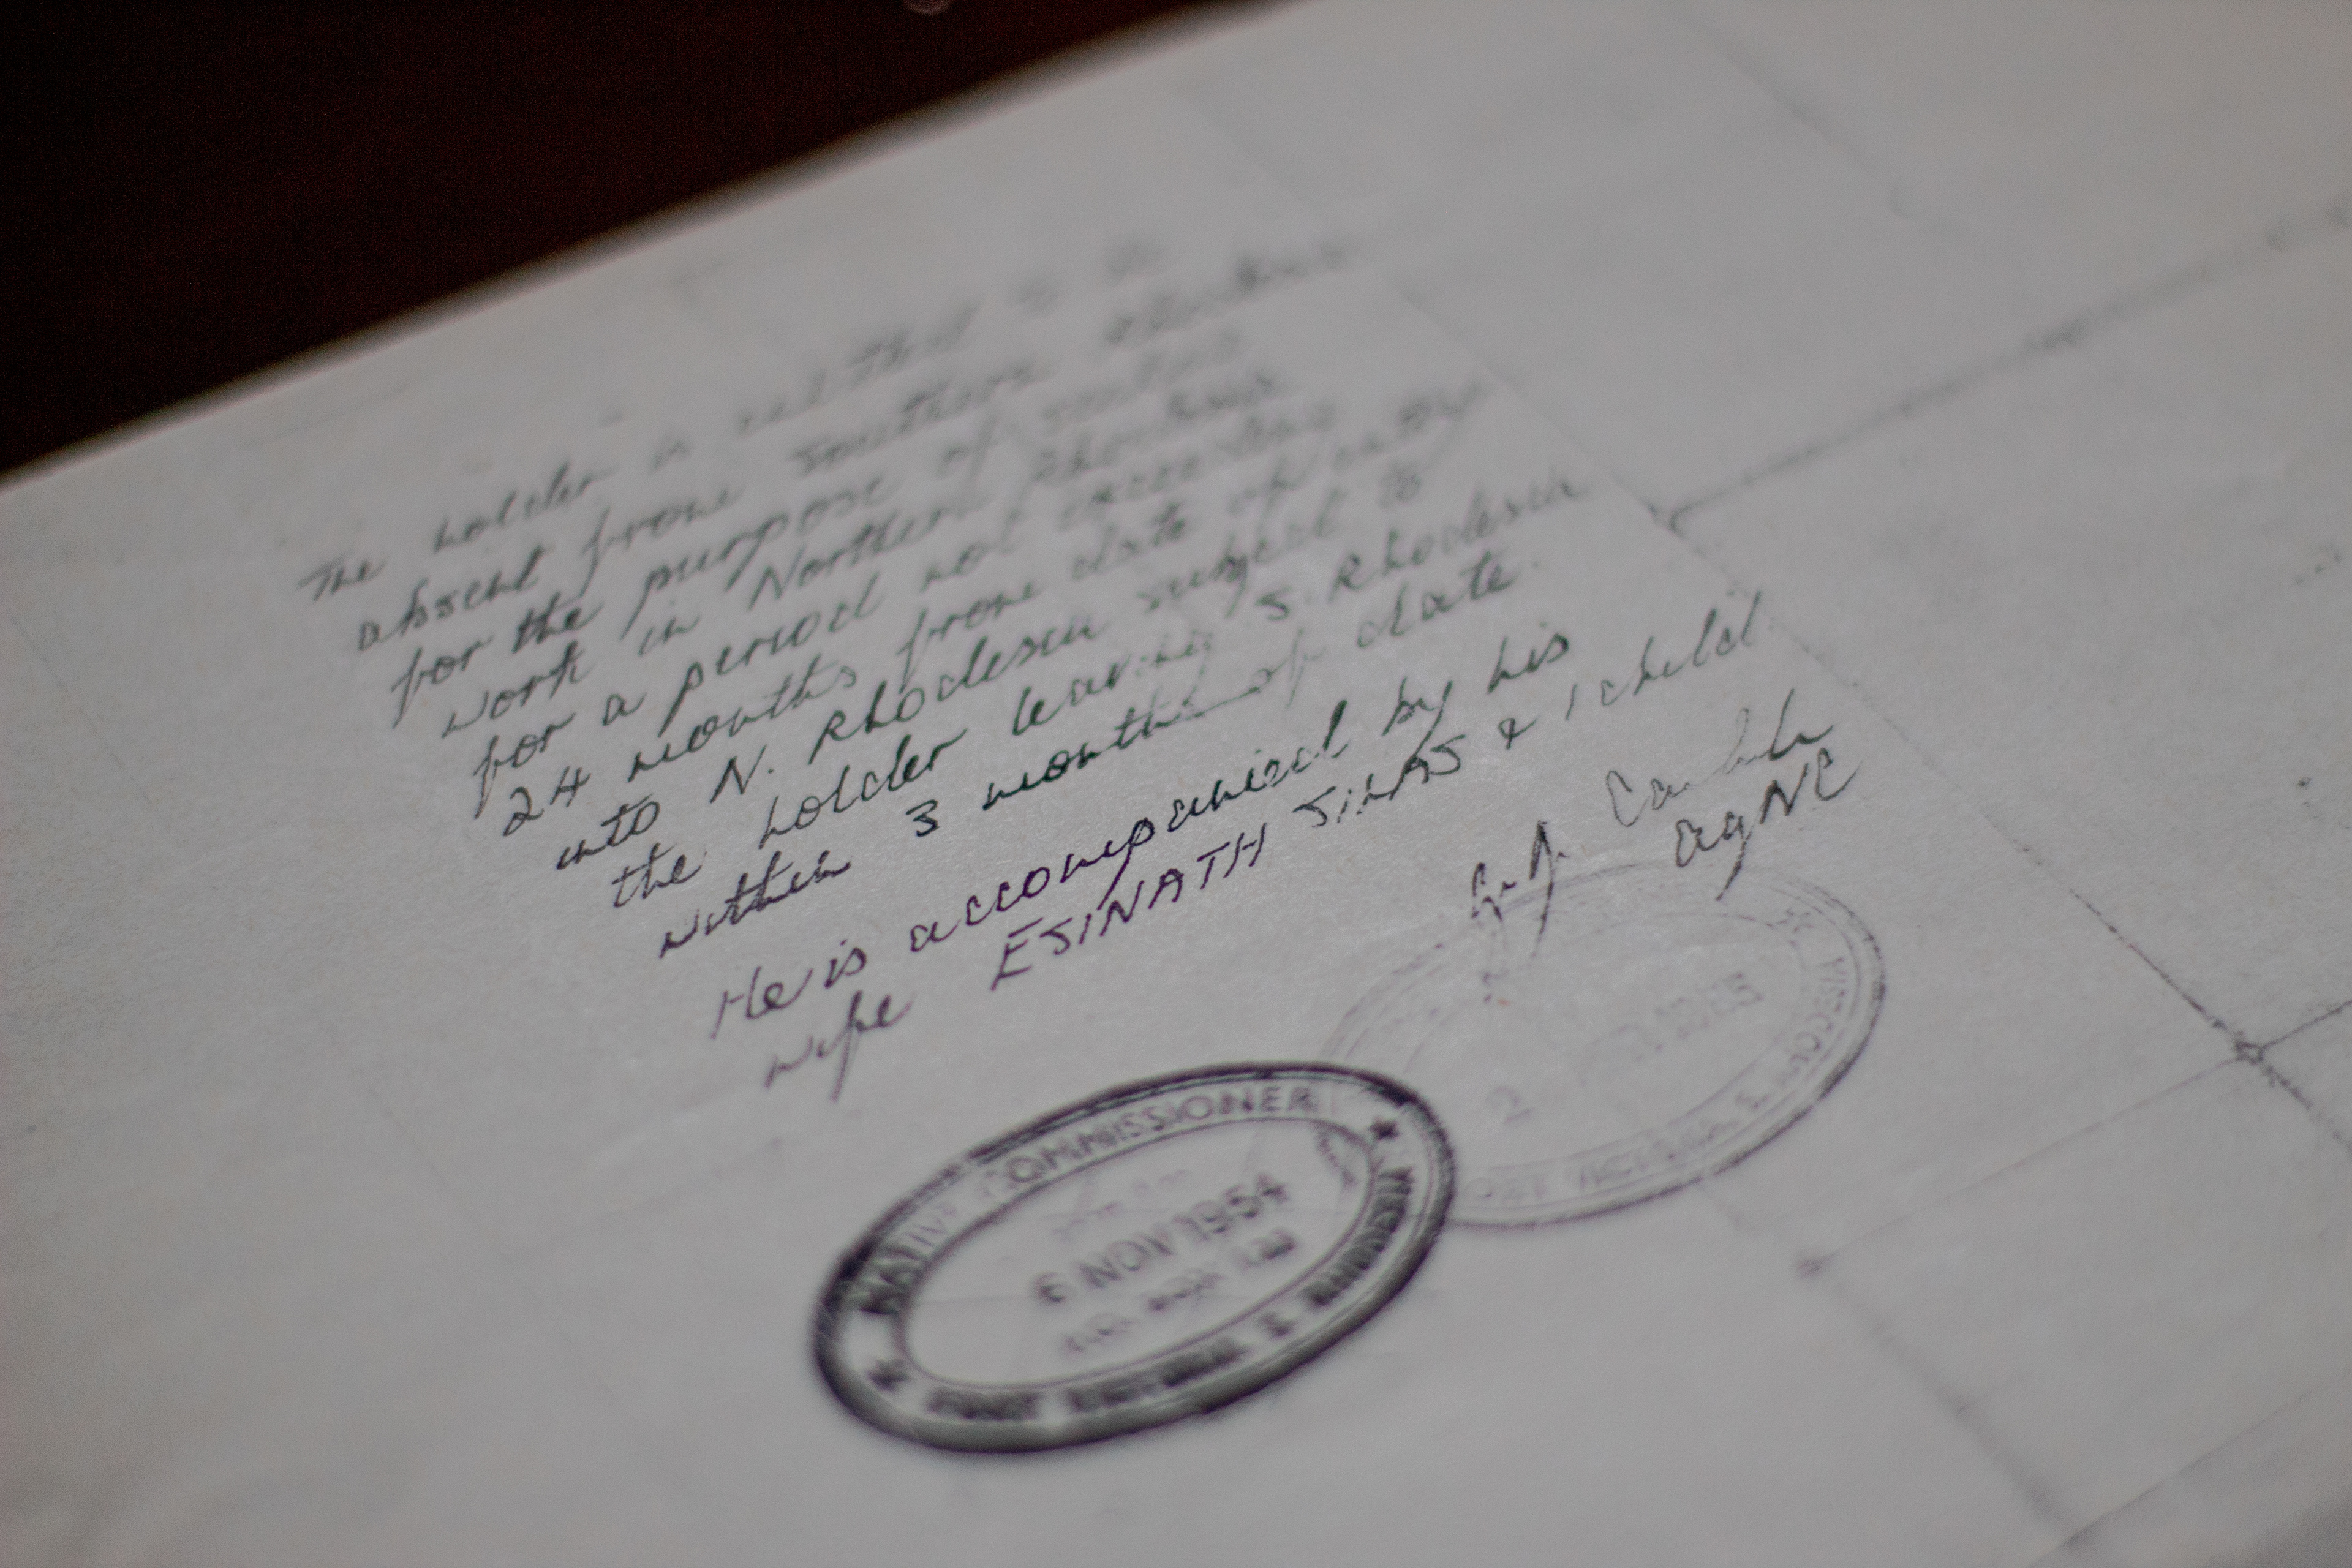 The holder is permitted to be
absent from Southern Rhodesia
for the purpose of seeking
work in Northern Rhodesia
for a period not exceeding
24 months from date of entry
into N. Rhodesia subject to
the holder leaving S. Rhodesia
within 3 months of date.
He is accompanied by his
wife ESINATH & 1 child
AgNC
NATIVE COMMISSIONER
6 NOV 1954
FORT VICTORIA S. RHODESIA